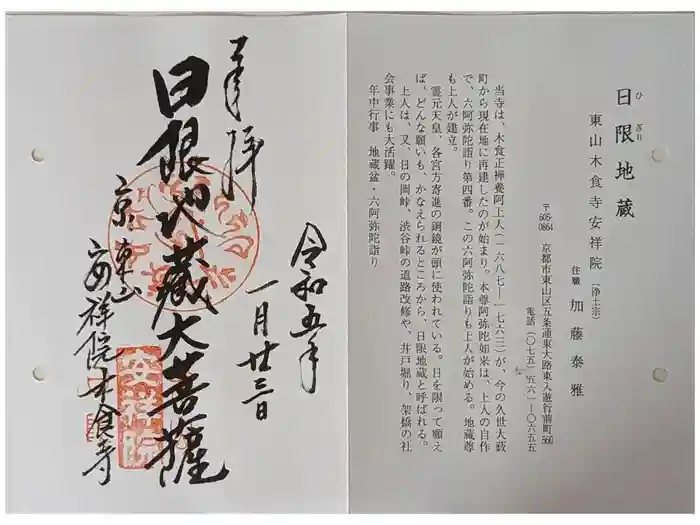 日限地蔵
ひぎり
東山木食寺安祥院(浄土宗)
住職 加藤泰雅
〒605-0864 京都市東山区五条通東大路東入遊行前町560
電話(〇七五)五六一―〇六五五
当寺は、木食正禅養阿上人(一六八七―一七六三)が、今の久世大藪
町から現在地に再建したのが始まり。本尊阿弥陀如来は、上人の自作
で、六阿弥陀詣り第四番。この六阿弥陀詣りも上人が始める。地蔵尊
も上人が建立。
霊元天皇、各宮方寄進の銅鏡が頭に使われている。日を限って願え
ば、どんな願いも、かなえられるところから、日限地蔵と呼ばれる。
上人は、又、日の岡峠、渋谷峠の道路改修や、井戸堀り、架橋の社
会事業にも大活躍。
年中行事 地蔵盆・六阿弥陀詣り
令和五年
一月廿三日
奉拝
日限地蔵大菩薩
京東山
安祥院木食寺
安祥院